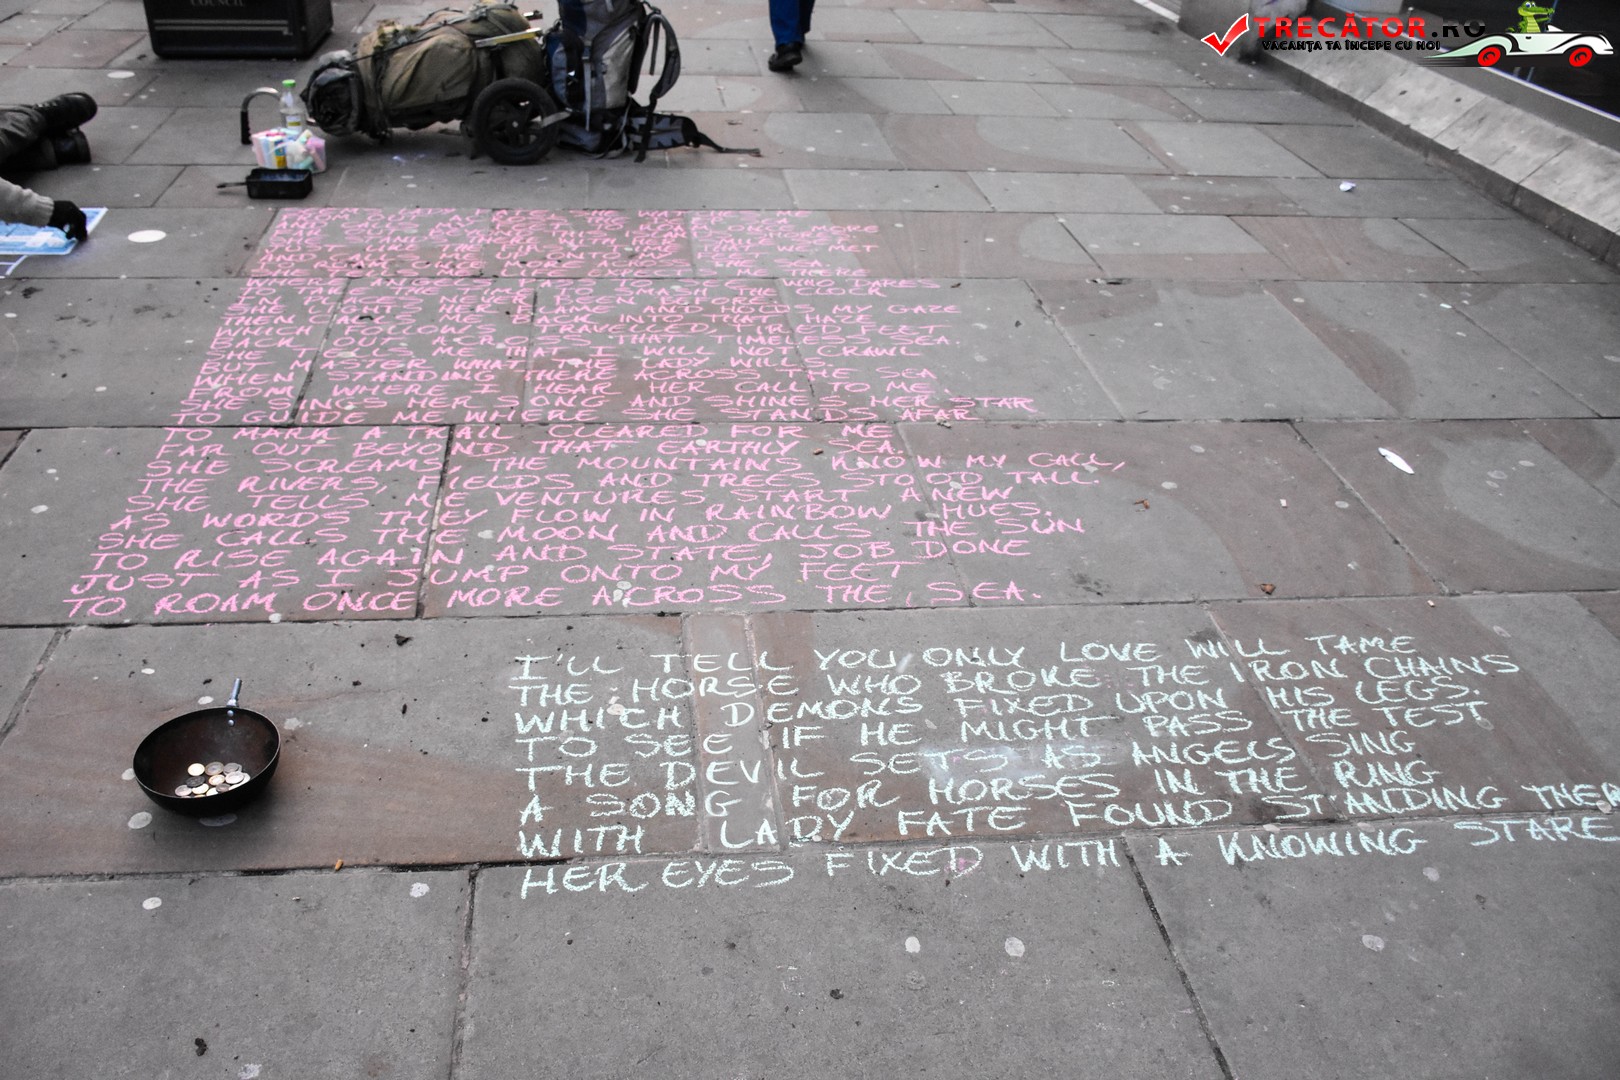 COUNCIL
TRECĂTOR.RO
VACANȚA TA ÎNCEPE CU NOI
WHERE ANGELS PASS TO SEE WHO DARES
IN PLACES NEVER BEEN BEFORE
SHE LIGHTS HER FLAME AND HOLDS MY GAZE
THEN CALLS ME BACK INTO THE HAZE
WHICH FOLLOWS TRAVELLED, TIRED FEET
BACK OUT ACROSS THAT TIMELESS SEA.
SHE TELLS ME THAT I WILL NOT CRAWL
BUT MASTER WHAT THE LADY WILLS
WHEN STANDING THERE ACROSS THE SEA
FROM WHERE I HEAR HER CALL TO ME.
SHE SINGS HER SONG AND SHINES HER STAR
TO GUIDE ME WHERE SHE STANDS AFAR
TO MARK A TRAIL CLEARED FOR ME
FAR OUT BEYOND THAT EARTHLY SEA.
SHE SCREAMS, THE MOUNTAINS KNOW MY CALL,
THE RIVERS, FIELDS AND TREES STOOD TALL.
SHE TELLS ME VENTURES START ANEW
AS WORDS THEY FLOW IN RAINBOW HUES.
SHE CALLS THE MOON AND CALLS THE SUN
TO RISE AGAIN AND STATE, JOB DONE
JUST AS I JUMP ONTO MY FEET
TO ROAM ONCE MORE ACROSS THE SEA.
I'LL TELL YOU ONLY LOVE WILL TAME
THE HORSE WHO BROKE THE IRON CHAINS
WHICH DEMONS FIXED UPON HIS LEGS.
TO SEE IF HE MIGHT PASS THE TEST
THE DEVIL SETS AS ANGELS SING
A SONG FOR HORSES IN THE RING
WITH LADY FATE FOUND STANDING THER
HER EYES FIXED WITH A KNOWING STARE